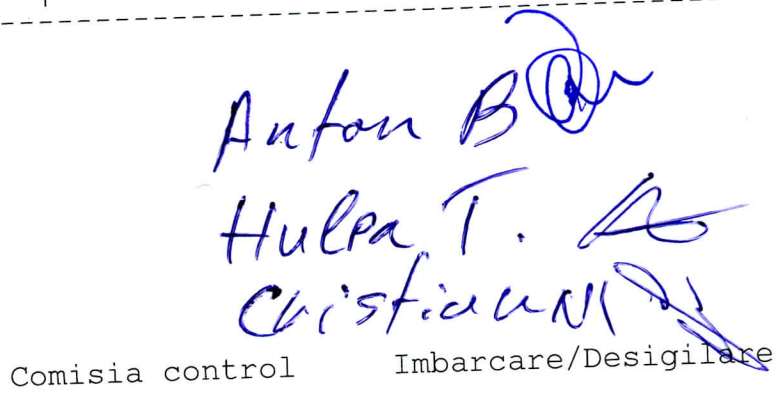 Anton B
Hulpa T.
Cristian N
Comisia control Imbarcare/Desigilare